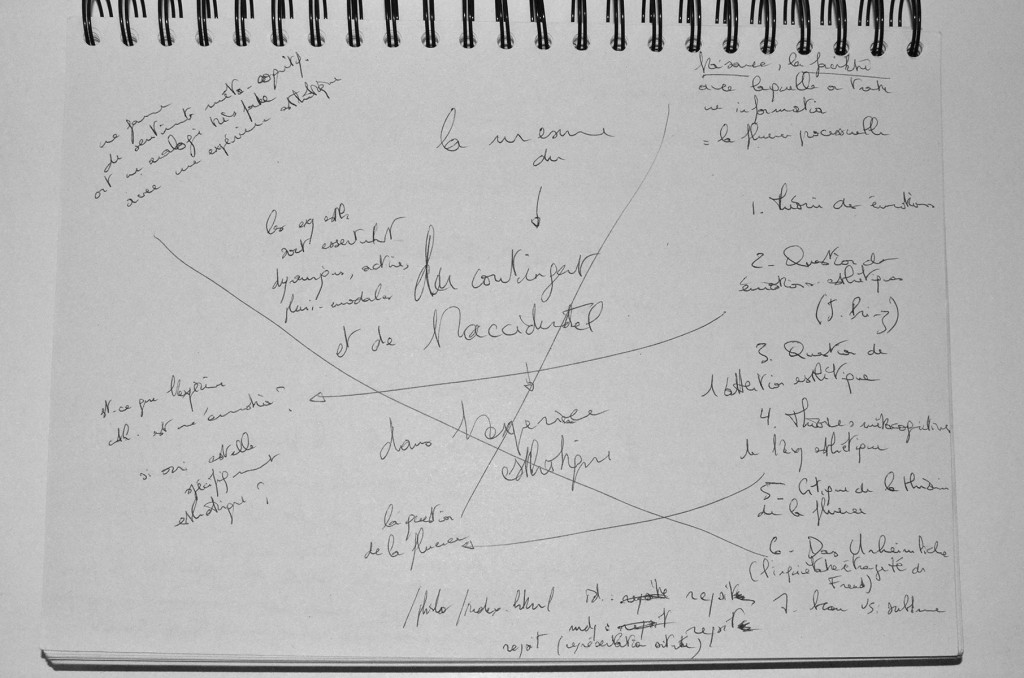 une forme
de sentiments méta-cognitifs
ont une analogie très forte
avec une expérience esthétique
la mesure
du
du contingent
et de l'accidentel
dans l'expérience
esthétique
les exp esth.
sont essentielmt
dynamiques, actives,
pluri-modales
est-ce que l'expérience
esth. est une émotion ?
si oui est elle
spécifiquement
esthétique ?
la question
de la fluence
la facilité
avec laquelle on traite
une information
= la fluence processuelle
1. Théorie des émotions
2_ Question des
émotions esthétiques
3. Question de
l'attention esthétique
4. Théories métacognitives
de l'exp esthétique
5_ Critique de la théorie
de la fluence
6_ Das Unheimliche
(l'inquiétante étrangeté de
Freud)
7. beau vs. sublime
/philo/index.html id.
mdp :
(représentation artiste)